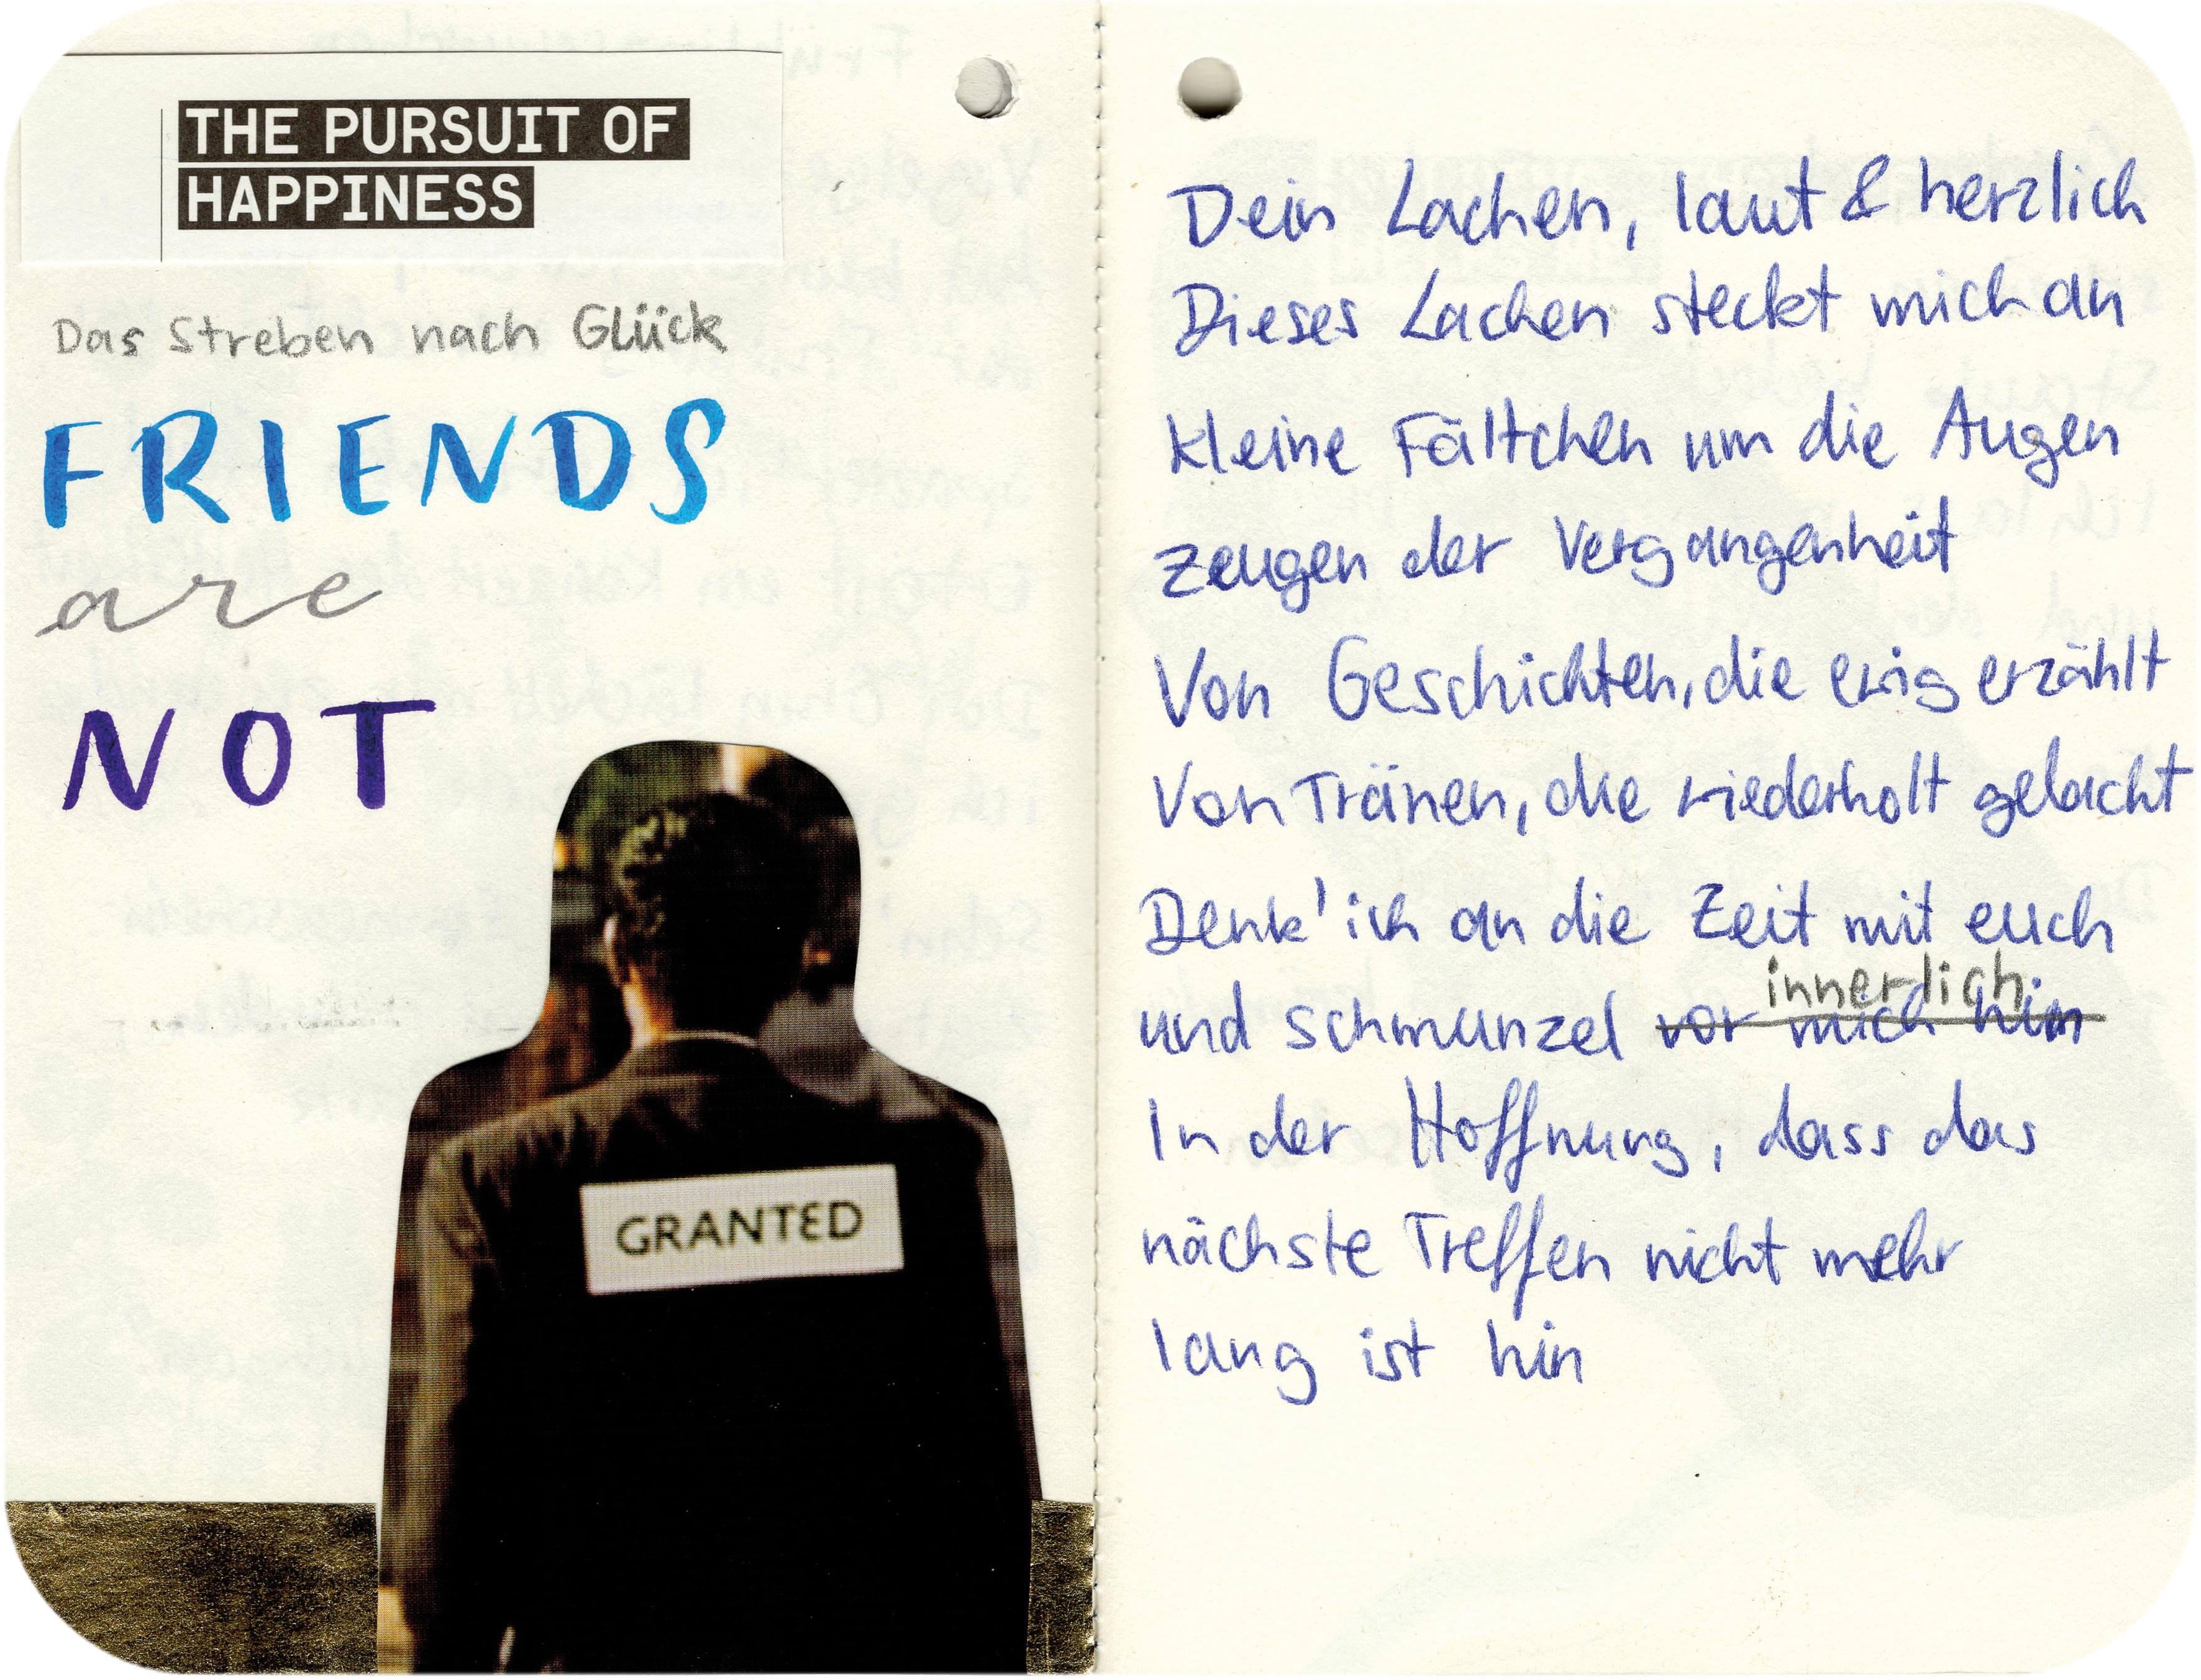 THE PURSUIT OF
HAPPINESS
Das Streben nach Glück
FRIENDS
are
NOT
GRANTED
Dein Lachen, laut & herzlich
Dieses Lachen steckt mich an
Kleine Fältchen um die Augen
Zeugen der Vergangenheit
Von Geschichten, die ewig erzählt
Von Tränen, die wiederholt gelacht
Denk' ich an die Zeit mit euch
innerlich
und schmunzel vor mich hin
In der Hoffnung, dass das
nächste Treffen nicht mehr
lang ist hin